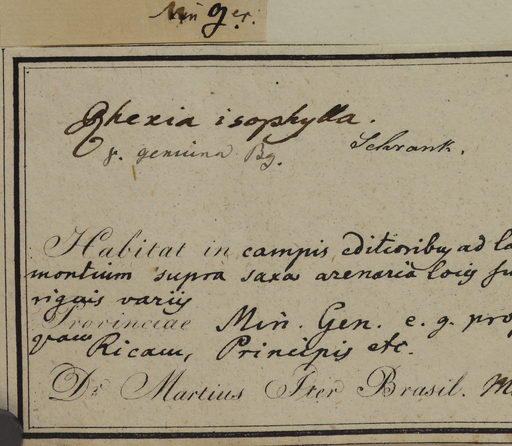 Min ger.
Rhexia isophylla.
γ. genuina Bg. Schrank.
Habitat in campis editioribus ad la
montium supra saxa arenaria locis su
riguis variis
Provinciae Min. Gen. e. g. prop
quam Ricam, Principis etc.
Dr Martius Iter Brasil. M